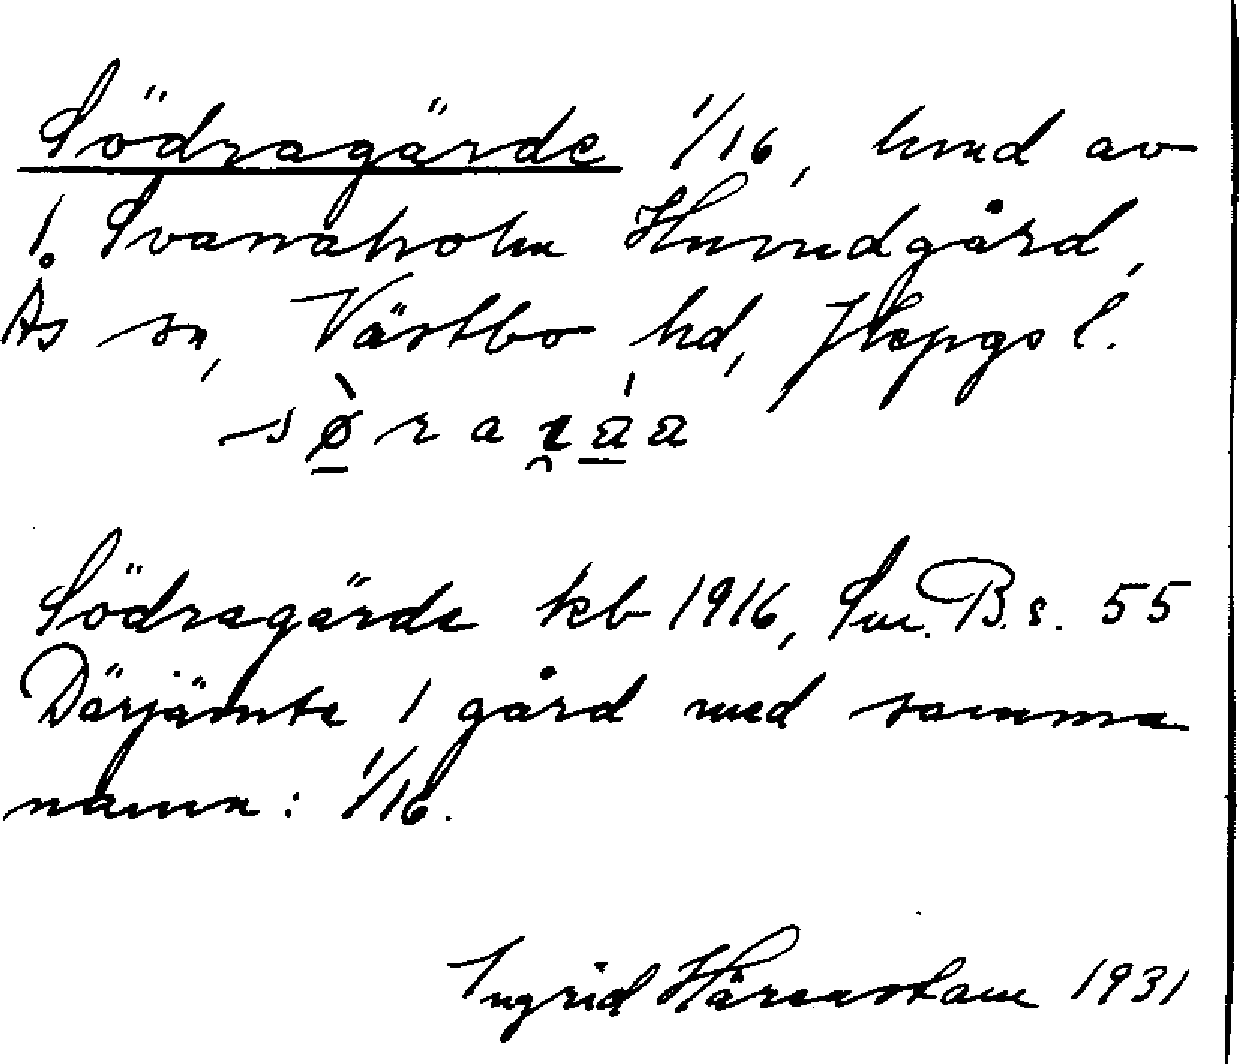 Södragärde 1/16, hmd av
1. Svanaholm Huvudgård,
Ås sn, Västbo hd, Jkpgs l.
Södragärde kb 1916, Sve. B. s. 55
Därjämte 1 gård med samma
namn: 1/16.
Ingrid Härenstam 1931